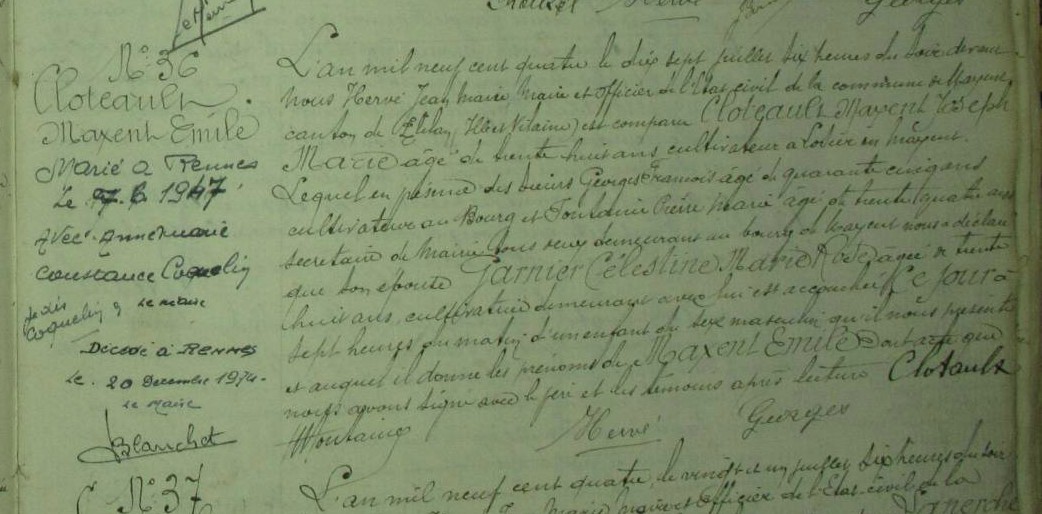 Hervé Georges
N° 36
Cloteault
Maxent Emile
Marié à Rennes
Le 7. 6 1947
Avec Anne Marie
Constance Coquelin
je dis Coquelin
Le maire
Décédé à RENNES
Le 20 Decembre 1974.
Le Maire
Blanchet
L'an mil neuf cent quatre le dix sept juillet six heures du soir devant
nous Hervé Jean Marie, Maire et officier de l'Etat civil de la commune de Maxent
canton de Plélan, Ille et Vilaine) est comparu Cloteault Maxent Joseph
Marie âgé de trente huit ans cultivateur à en Maxent.
Lequel en présence des sieurs Georges François âgé de quarante cinq ans
cultivateur au Bourg et Fontaine Pierre Marie âgé de trente quatre ans
secrétaire de Mairie tous deux demeurant au bourg de Maxent nous a déclaré
que son épouse Garnier Célestine Marie Rose âgée de trente
huit ans, cultivatrice demeurant avec lui est accouchée ce jour à
sept heures du matin d'un enfant du sexe masculin qu'il nous présente
et auquel il donne les prénoms de Maxent Emile Dont acte que
nous avons signé avec le père et les témoins après lecture Clotault
Fontaine Hervé Georges
N° 37
L'an mil neuf cent quatre, le vingt et un juillet, six heures du soir
Marie maire et officier de l'Etat civil de la